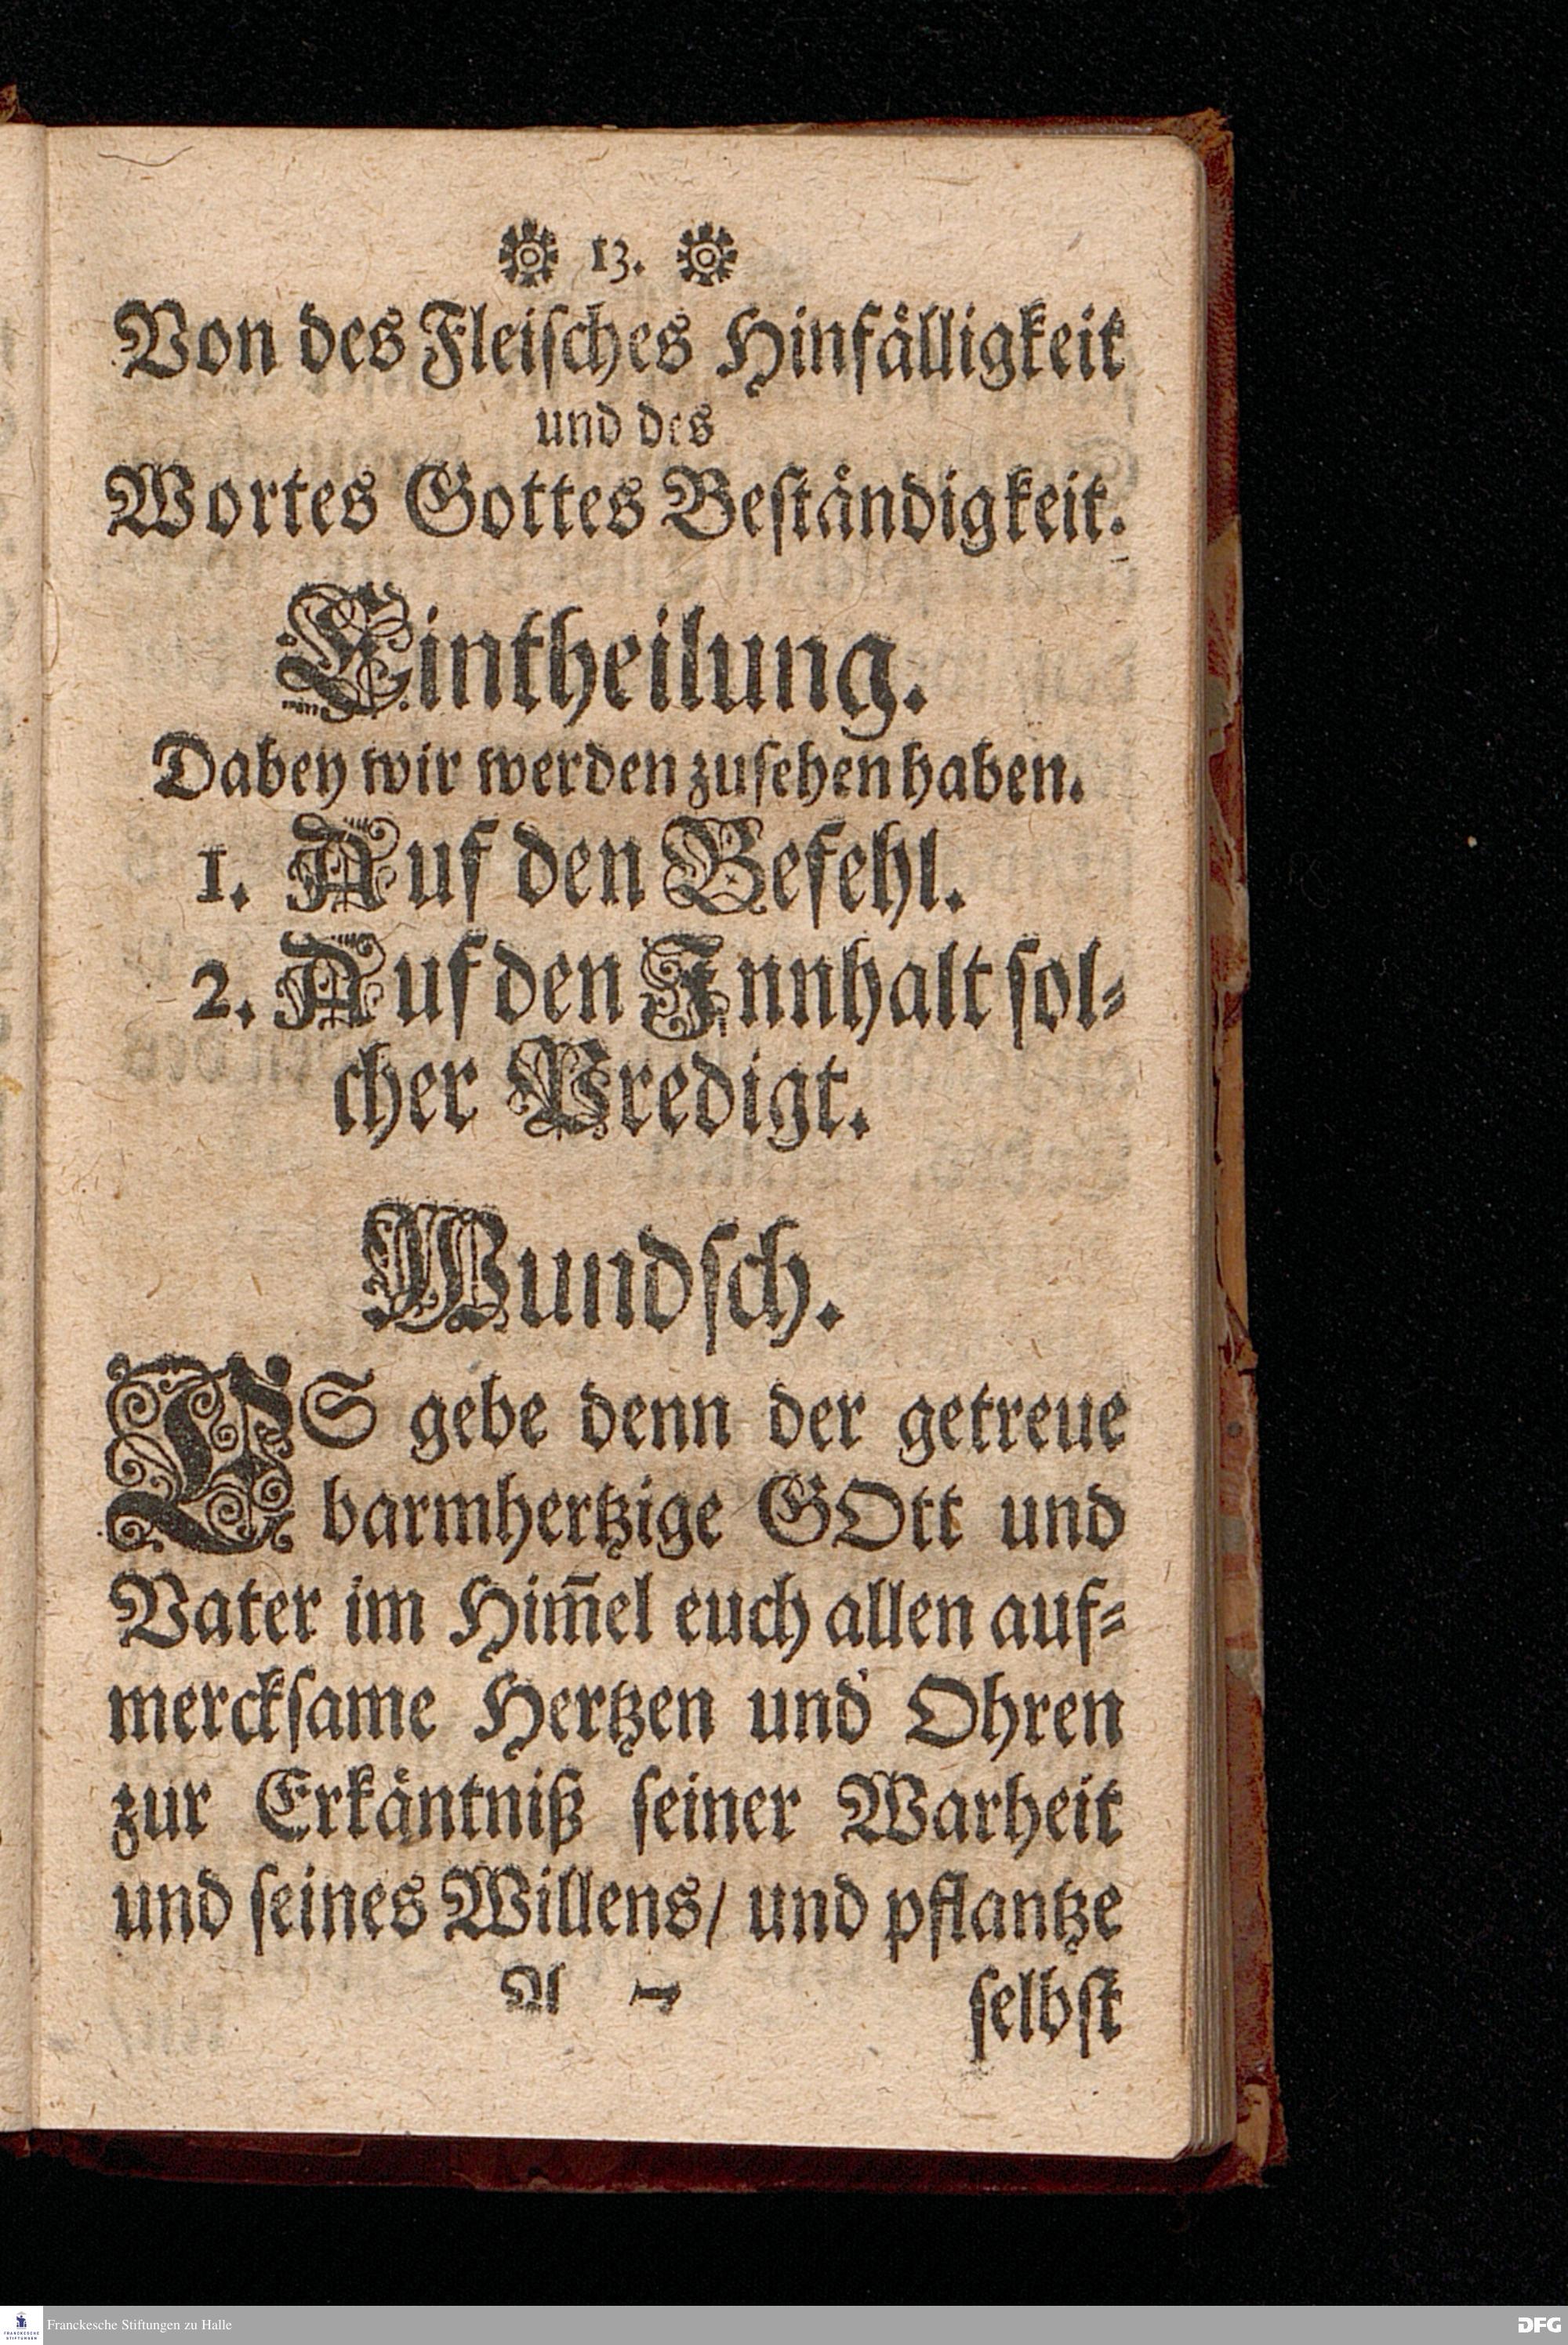 13.
Von des Fleisches Hinfälligkeit
und des
Wortes Gottes Beständigkeit.
Eintheilung.
Dabey wir werden zusehen haben.
1. Auf den Befehl.
2. Auf den Innhalt sol⸗
cher Predigt.
Wundsch.
ES gebe denn der getreue
barmhertzige GOtt und
Vater im Him̄el euch allen auf⸗
mercksame Hertzen und Ohren
zur Erkäntniß seiner Warheit
und seines Willens/ und pflantze
A
selbst
FRANCKESCHE
STIFTUNGEN
Franckesche Stiftungen zu Halle
DFG